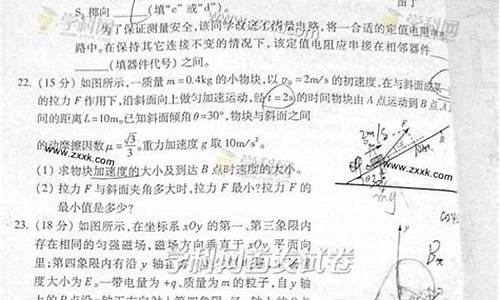 S₂掷向 (填“c”或“d”)。
为了保证测量安全,该同学改进了测量电路,将一合适的定值电阻
路中。在保持其它连接不变的情况下,该定值电阻应串接在相邻器件
(填器件代号)之间。
22. (15 分) 如图所示,一质量 m=0.4kg 的小物块,以 v₀=2m/s 的初速度,在与斜面成某
的拉力 F 作用下,沿斜面向上做匀加速运动,经 t=2s 的时间物块由 A 点运动到 B 点,A
间的距离 L=10m。已知斜面倾角 θ=30°,物块与斜面之间
的动摩擦因数 μ=√3/3。重力加速度 g 取 10m/s²。
(1) 求物块加速度的大小及到达 B 点时速度的大小。
(2) 拉力 F 与斜面夹角多大时,拉力 F 最小?拉力 F 的
最小值是多少?
23. (18 分) 如图所示,在坐标系 xOy 的第一、第三象限内
存在相同的匀强磁场,磁场方向垂直于 xOy 平面向
里;第四象限内有沿 y 轴正方向的匀强电场,
度大小为 E。一带电量为 +q、质量为 m 的粒子,自 y 轴
2m/s
F
10m
mg
y
B
www.zxxk.com
www.zxxk.com
学科网
学科网
学科网首发试卷